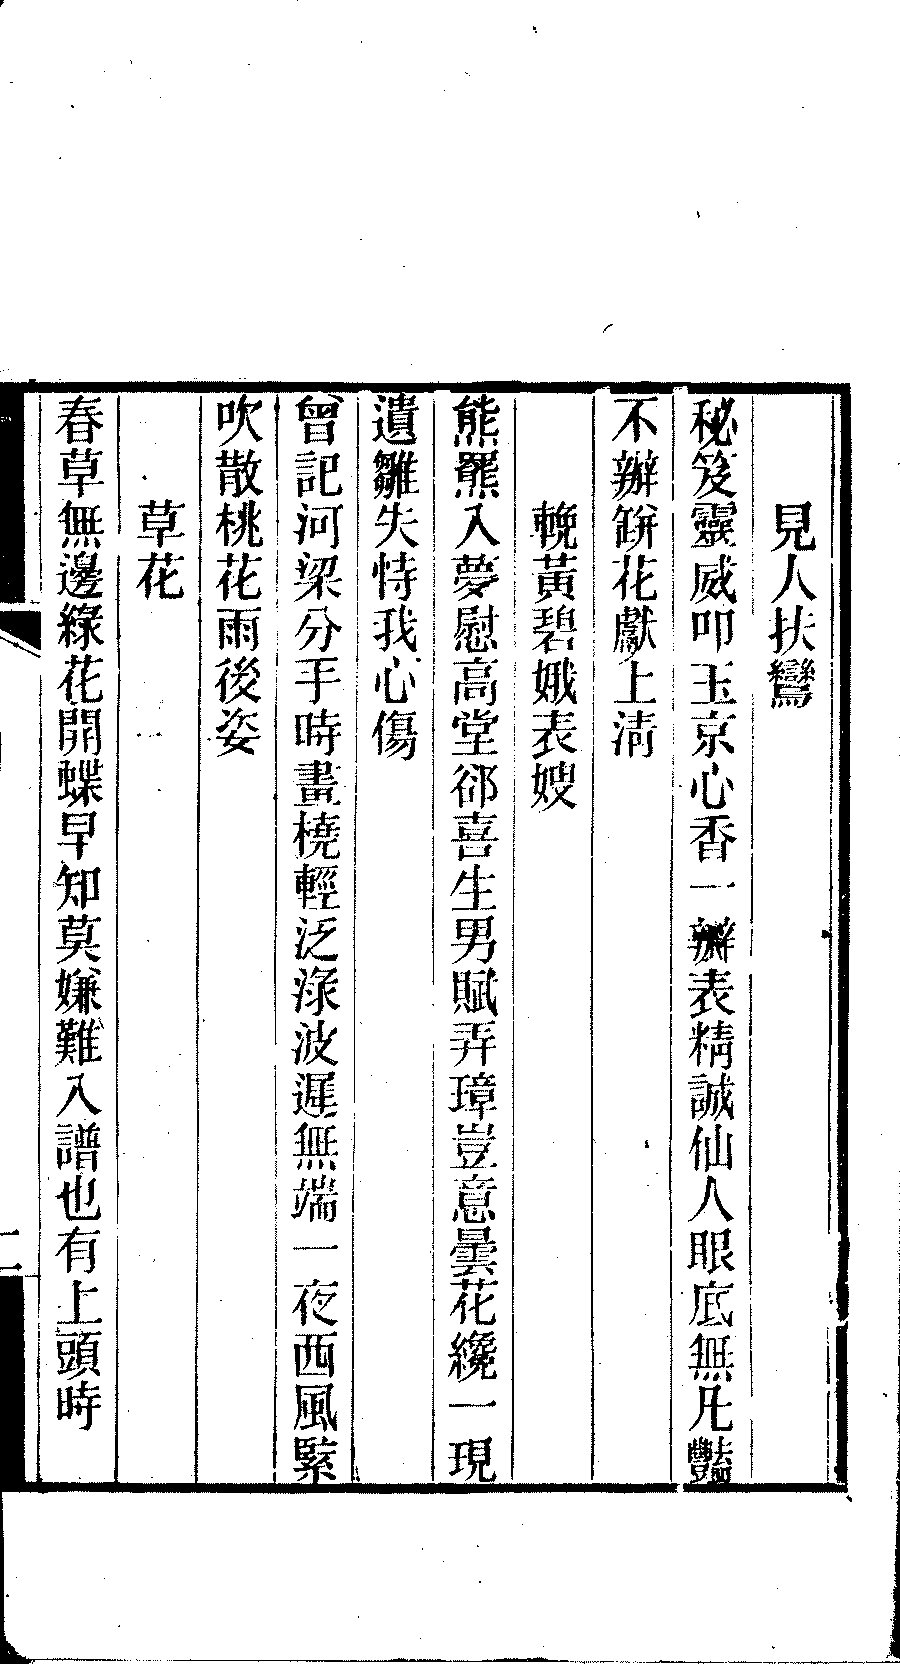 見人扶鸞
秘笈靈威叩玉京心香一瓣表精誠仙人眼底無凡豔
不辦餅花獻上清
輓黃碧娥表嫂
熊羆入夢慰高堂郤喜生男賦弄璋豈意曇花纔一現
遺雛失恃我心傷
曾記河梁分手時畫橈輕泛淥波遲無端一夜西風緊
吹散桃花雨後姿
草花
春草無邊綠花開蝶早知莫嫌難入譜也有上頭時
二